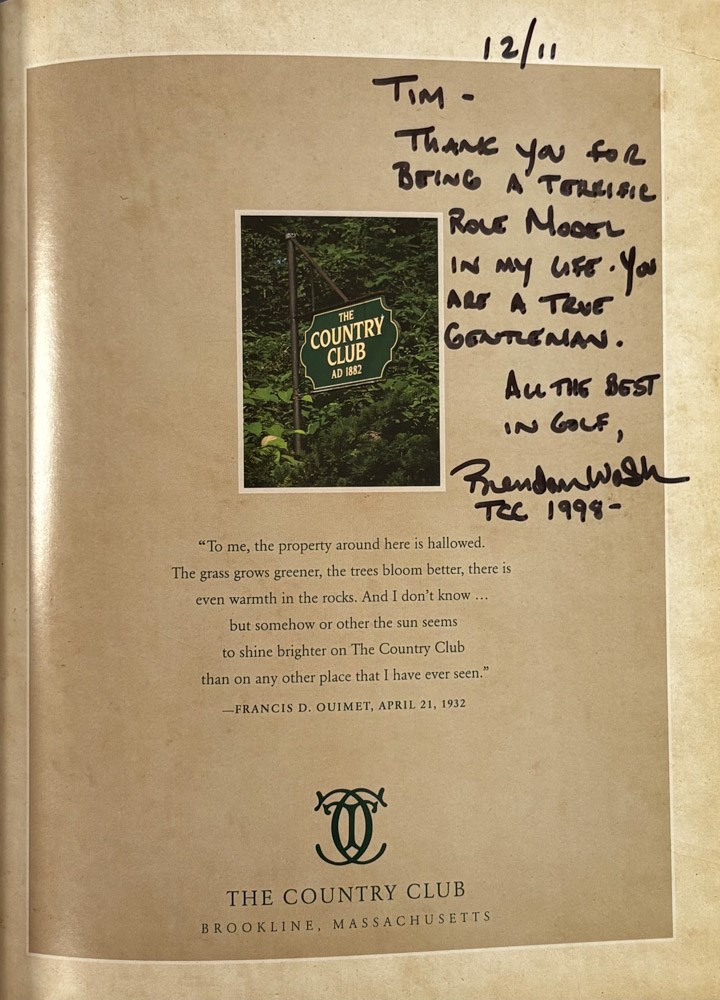 12/11
TIM -
THANK YOU FOR
BEING A TERRIFIC
ROLE MODEL
IN MY LIFE. YOU
ARE A TRUE
GENTLEMAN.
ALL THE BEST
IN GOLF,
Brendan Walsh
TCC 1998-
THE
COUNTRY
CLUB
AD 1882
“To me, the property around here is hallowed.
The grass grows greener, the trees bloom better, there is
even warmth in the rocks. And I don’t know …
but somehow or other the sun seems
to shine brighter on The Country Club
than on any other place that I have ever seen.”
—FRANCIS D. OUIMET, APRIL 21, 1932
THE COUNTRY CLUB
BROOKLINE, MASSACHUSETTS